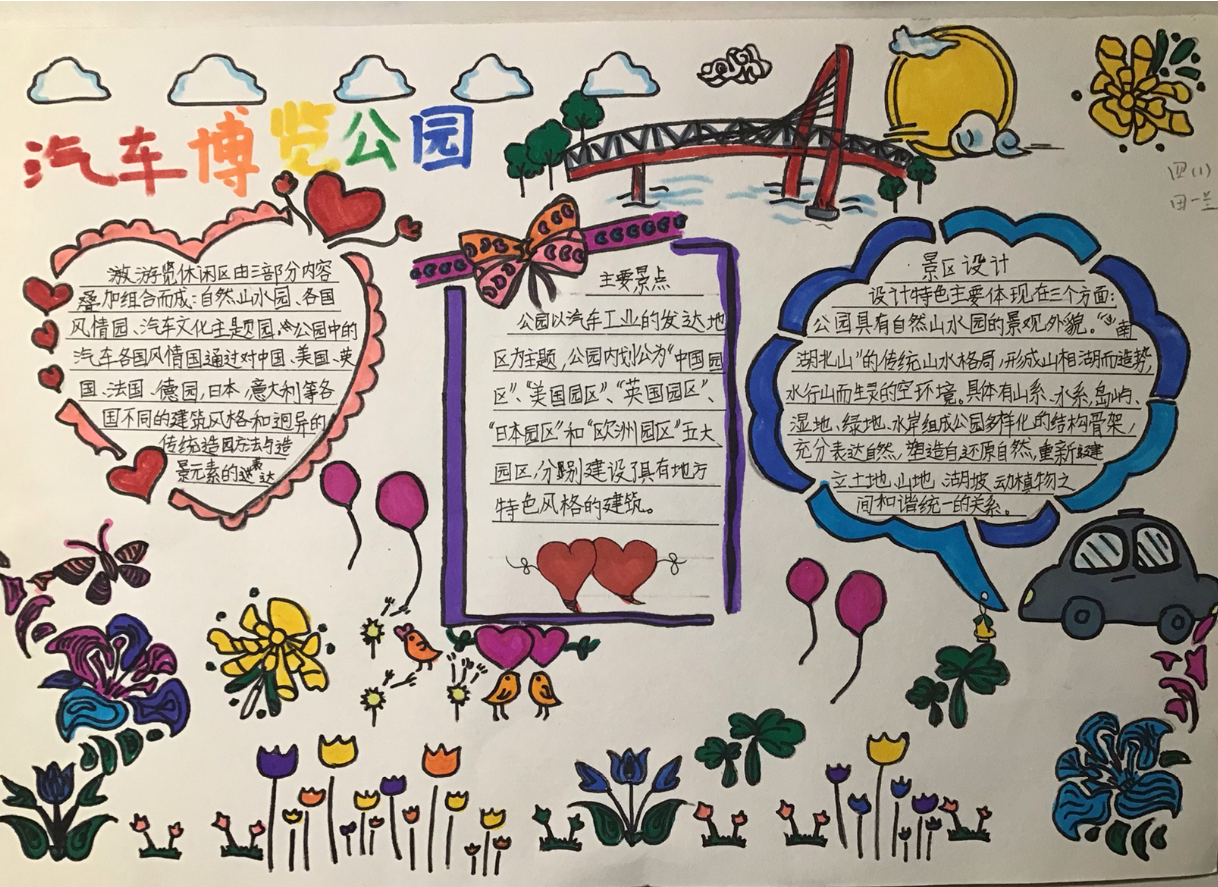 汽车博览公园
四(1)
田一
游览休闲区由三部分内容
叠加组合而成:自然山水园、各国
风情园、汽车文化主题园,公园中的
汽车各国风情园通过对中国、美国、英
国、法国、德园,日本、意大利等各
国不同的建筑风格和迥异的
传统造园方法与造
景元素的表达
主要景点
公园以汽车工业的发达地
区为主题,公园内划分为“中国园
区”、“美国园区”、“英国园区”、
“日本园区”和“欧洲园区”五大
园区,分别建设了具有地方
特色风格的建筑。
景区设计
设计特色主要体现在三个方面:
公园具有自然山水园的景观外貌。“南
湖北山”的传统山水格局,形成山相湖而造势,
水行山而生灵的空环境。具体有山系、水系、岛屿、
湿地、绿地、水岸组成公园多样化的结构骨架,
充分表达自然,塑造自还原自然,重新建
立土地、山地、湖坡、动植物之
间和谐统一的关系。